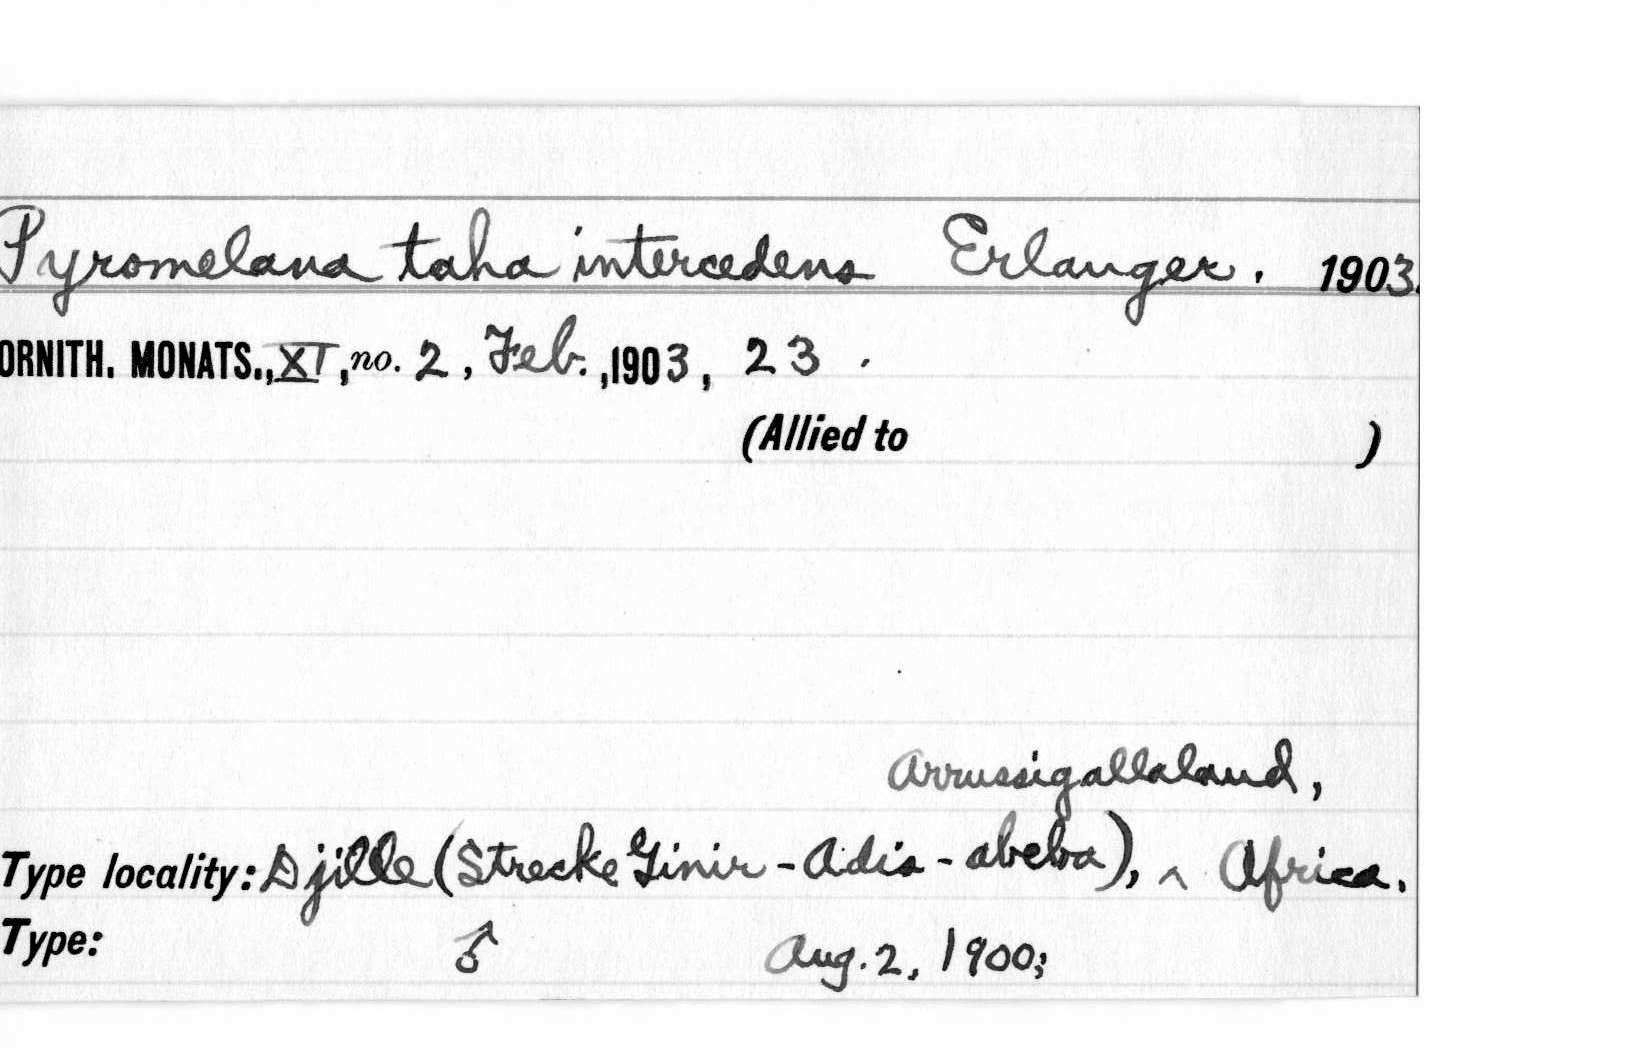 Pyromelana taha intercedens Erlanger. 1903.
ORNITH. MONATS., XI, no. 2, Feb., 1903, 23.
(Allied to )
Arrussigallaland,
Type locality: Djille (Strecke Ginir-Adis-abeba), ^ Africa.
Type: ♂ Aug. 2, 1900;